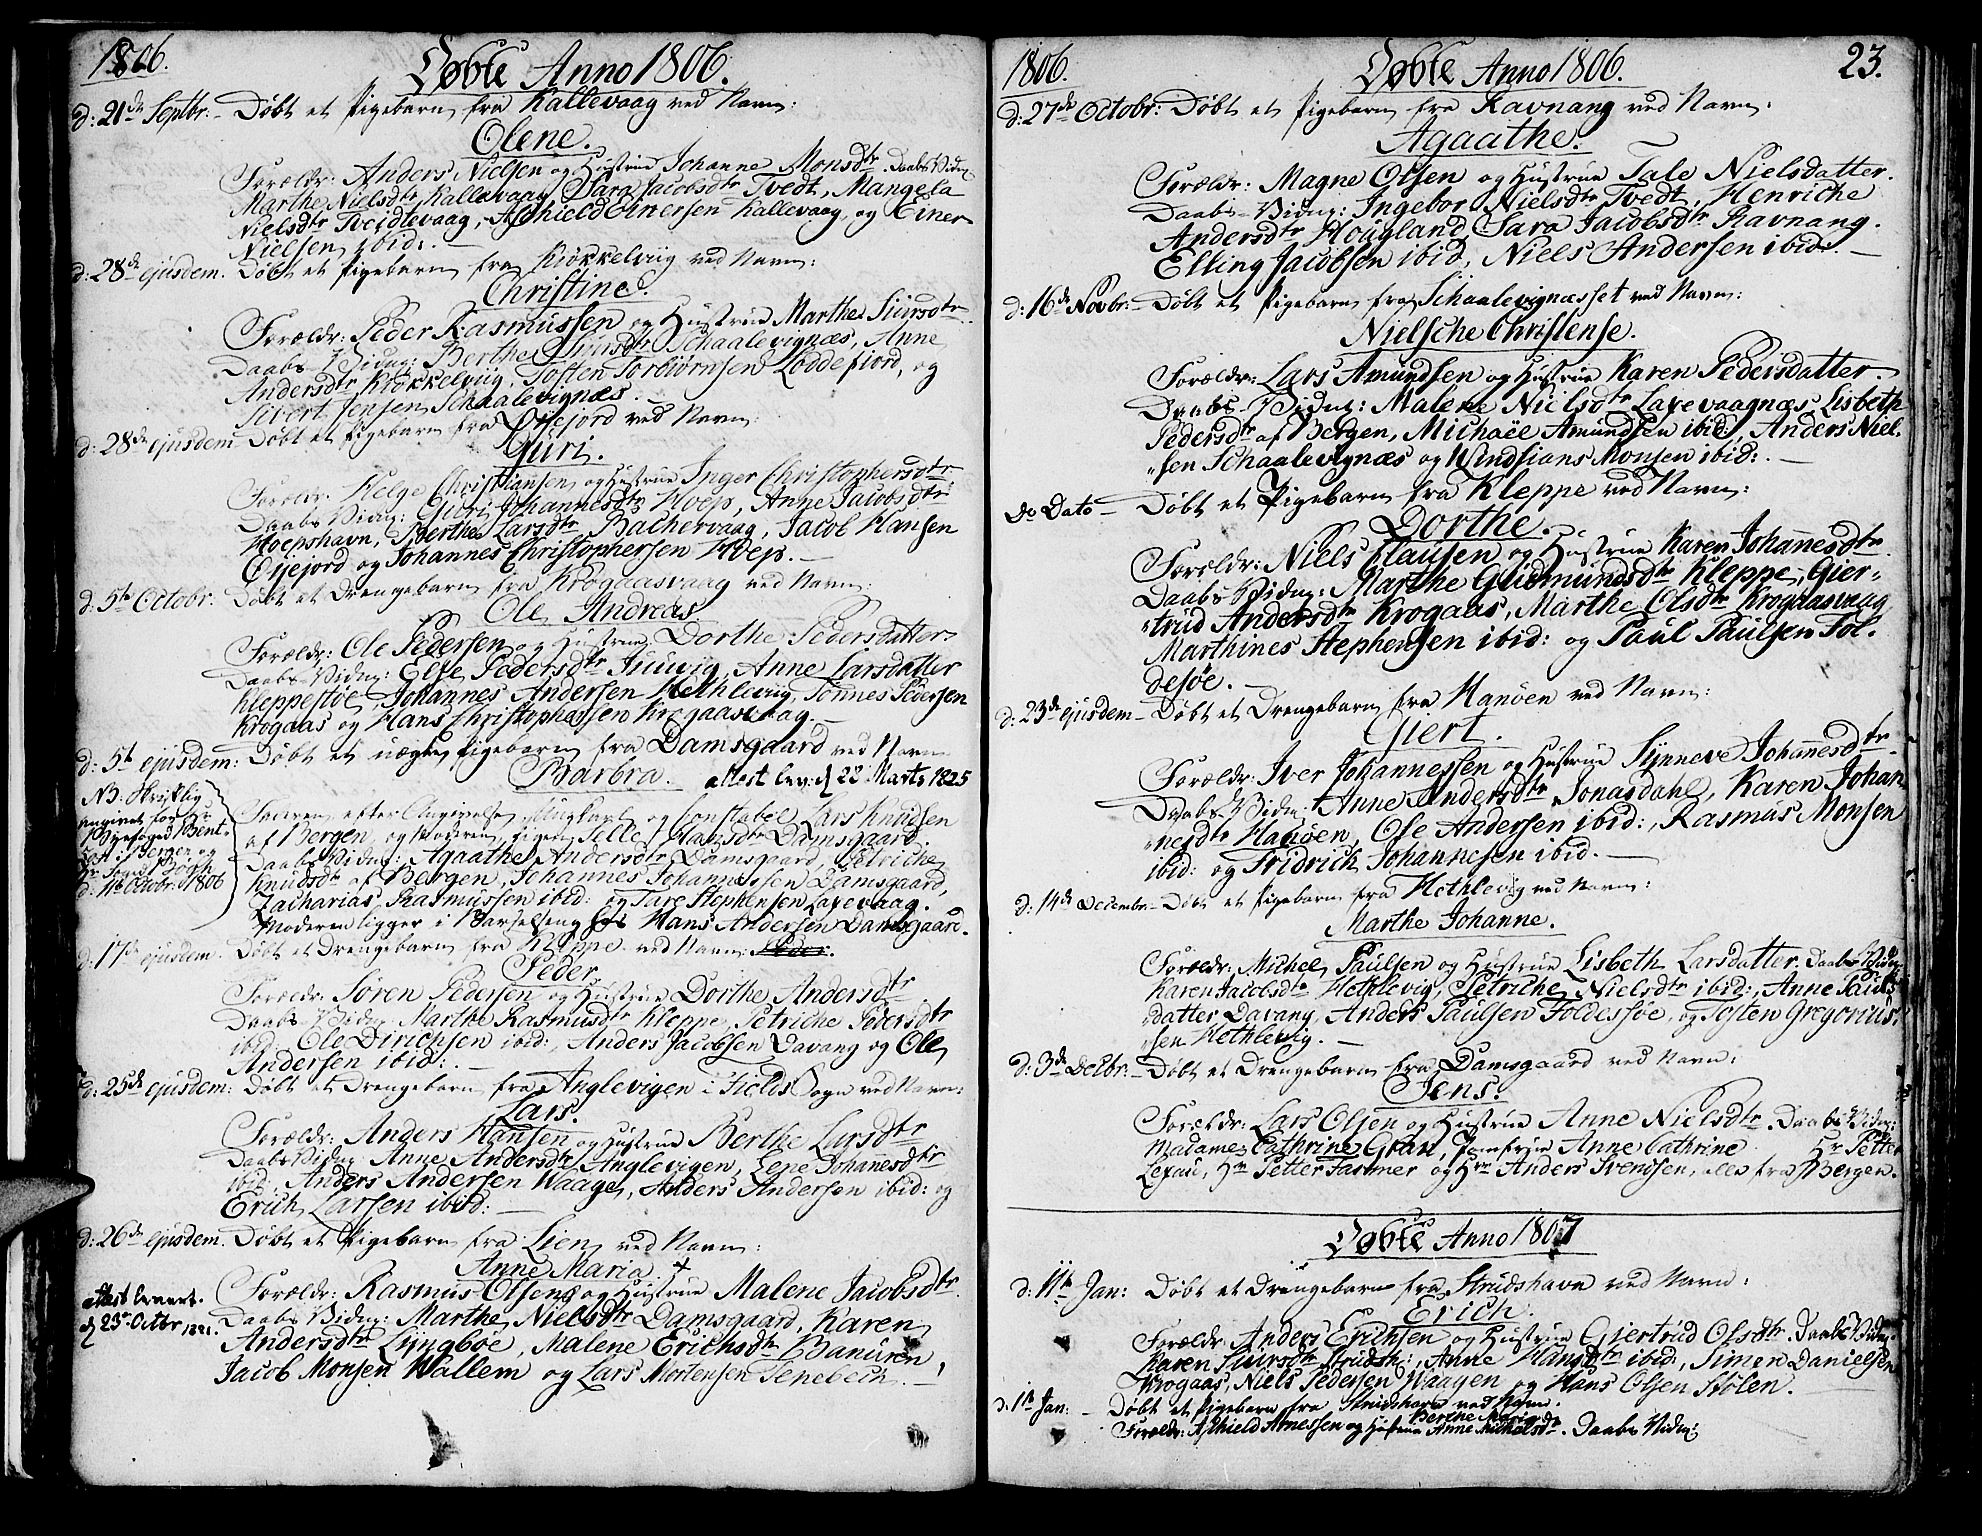 1806.
Døbte Anno 1806.
d: 21de Septbr: – Døbt et Pigebarn fra Kallevaag ved Navn:
Olene.
Forældr: Anders Nielsen og Hustrue Johanne Monsdtr. Daabs Vidn:
Marthe Nielsdtr Kallevaag, Sara Jacobsdtr Tvedt, Mangela
Nielsdtr Tveidlevaag, Aschield Einersen Kallevaag, og Einer
Nielsen ibid: –
d: 28de ejusdem. Døbt et Pigebarn fra Kiøkkelviig ved Navn:
Christine.
Forældr: Peder Rasmussen og Hustrue Marthe Siursdtr.
Daabs Vidn: Berthe Siursdtr Schaalevignæs, Anne
Andersdtr Kiøkkelviig, Tosten Torbiørnsen Loddefiord, og
Sivert Jensen Schaalevignæs. –
d: 28de ejusdem Døbt et Pigebarn fra Eijefjord ved Navn:
Guri.
Forældr: Helge Christiansen og Hustrue Inger Christophersdtr
Daabs Vidn: Guri Johannesdtr Hoep, Anne Jacobsdtr
Hoepshavn, Berthe Larsdtr Bachervaag, Jacob Hansen
Eijefjord og Johannes Christophersen Hoep. –
d: 5te Octobr: Døbt et Drengebarn fra Krogaasvaag ved Navn:
Ole Andreas
Forældr: Ole Pedersen og Hustrue Dorthe Pedersdatter
Daabs-Vidn: Else Pedersdtr Juuvig, Anne Larsdatter
Kleppestøe, Johannes Andersen Hethlevig, Tønnes Pedersen
Krogaas og Hans Christophersen Krogaasvaag. –
d: 5te ejusdem: Døbt et uægte Pigebarn fra Damsgaard ved Navn
Barbra. attest lev: d 22 Marts 1825
NB: Skriftlig
angivet for Hr
Byefoged Bent-
zen i Bergen og
Hr Foged Bøgh
d: 11te Octobr: 1806
Faderen efter Angivelse Ungkarl og Constabel Lars Knudsen
af Bergen, og Moderen Pigen Pelle Hansdtr Damsgaard.
Daabs Vidn: Agaathe Andersdtr Damsgaard, Petriche
Knudsdtr af Bergen, Johannes Johannessen Damsgaard,
Zacharias Rasmussen ibid: og Tare Stephensen Laxevaag.
Moderen ligger i Barselseng hos Hans Andersen Damsgaard.
d: 17de ejusdem. Døbt et Drengebarn fra Kleppe ved Navn: Peder.
Peder.
Forældr: Søren Pedersen og Hustrue Dorthe Andersdtr
Daabs-Vidn: Marthe Rasmusdtr Kleppe, Petriche Pedersdtr
ibid: Ole Dirichsen ibid:, Anders Jacobsen Davang og Ole
Andersen ibid: –
d: 25de ejusdem: Døbt et Drengebarn fra Anglevigen i Fields Sogn ved Navn:
Lars.
Forældr: Anders Hansen og Hustrue Berthe Larsdtr
Daabs Vidn: Anne Andersdtr Anglevigen, Lene Johanesdtr
ibid: Anders Andersen Waage, Anders Andersen ibid: og
Erich Larsen ibid: –
d: 26de ejusdem. Døbt et Pigebarn fra Lien ved Navn:
Anne Maria +
attest leveret.
d 23de Octbr 1821.
Forældr: Rasmus Olsen og Hustrue Malene Jacobsdtr.
Daabs Vidn: Marthe Nielsdtr Damsgaard, Karen
Andersdtr Lyngbøe, Malene Erichsdtr Banuren,
Jacob Monsen Wallem og Lars Mortensen Tenebech. –
1806.
Døbte Anno 1806.
23.
d: 27de Octobr: Døbt et Pigebarn fra Ravnang ved Navn:
Agaathe.
Forældr: Magne Olsen og Hustrue Tale Nielsdatter.
Daabs-Vidn: Ingebor Nielsdtr Tvedt, Henriche
Andersdtr Hougland, Sara Jacobsdtr Ravnang.
Elling Jacobsen ibid, Niels Andersen ibid. –
d: 16de Novbr: – Døbt et Pigebarn fra Schaalevignæsset ved Navn:
Nielsche Christense.
Forældr: Lars Amundsen og Hustrue Karen Pedersdatter
Daabs-Vidn: Malene Nielsdtr Laxevaagnæs, Lisbeth
Pedersdtr af Bergen, Michael Amundsen ibid:, Anders Niel-
"sen Schaalevignæs og Windsians Monsen ibid: –
do Dato – Døbt et Pigebarn fra Kleppe ved Navn:
Dorthe.
Forældr: Niels Clausen og Hustrue Karen Johanesdtr
Daabs Vidn: Marthe Gudmundsdtr Kleppe, Gier-
"trud Andersdtr Krogaas, Marthe Olsdtr Krogaasvaag
Marthines Stephensen ibid: og Paul Paulsen Fol-
desøe. –
d: 23de ejusdem – Døbt et Drengebarn fra Hanøen ved Navn:
Giert.
Forældr: Iver Johannessen og Hustrue Synneve Johanesdtr
Daabs-Vidn: Anne Andersdtr Jonasdahl, Karen Johan-
"nesdtr Hanøen, Ole Andersen ibid:, Rasmus Monsen
ibid: og Fridrich Johannesen ibid. –
d: 14de Decembr – Døbt et Pigebarn fra Hethlevig ved Navn:
Marthe Johanne.
Forældr: Michel Paulsen og Hustrue Lisbeth Larsdatter. Daabs Vidn:
Karen Jacobsdtr Hethlevig, Petriche Nielsdtr ibid:, Anne Pauls-
"datter Davang, Anders Paulsen Foldessøe, og Tosten Gregorius-
"sen Hethlevig. –
d: 3de Decbr: – Døbt et Drengebarn fra Damsgaard ved Navn:
Jens.
Forældr: Lars Olsen og Hustrue Anne Nielsdtr. Daabs Vidn:
Madame Cathrine Gran, Jomfrue Anne Cathrine Hr Petter
Lexau, Hr Petter Farmer og Hr Anders Svendsen, alle fra Bergen.
Døbte Anno 1807
d: 11te Jan: Døbt et Drengebarn fra Strudshavn ved Navn:
Erich.
Forældr: Anders Erichsen og Hustrue Gjertrud Olsdtr. Daabs Vidn:
Karen Siursdtr Strudsh:, Anne Hansdtr ibid:, Simen Danielsen
Krogaas, Niels Pedersen Waagen og Hans Olsen Stølen.
d: 11te Jan: – Døbt et Pigebarn fra Strudshavn ved Navn.
Berthe Maria
Forældr: Aschield Arnessen og Hustrue Anne Michelsdtr. Daabs Vidn: